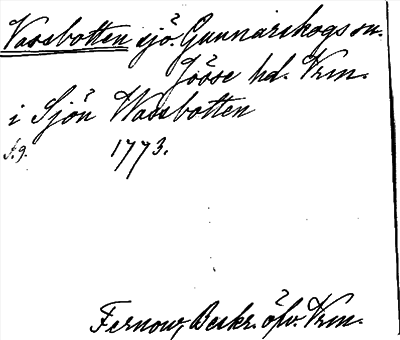 Vassbotten sjö. Gunnarskogs sn.
Jösse hd. Vrm.
i Sjön Wassbotten
s. 9. 1773.
Fernow, Beskr. öfv. Vrm.